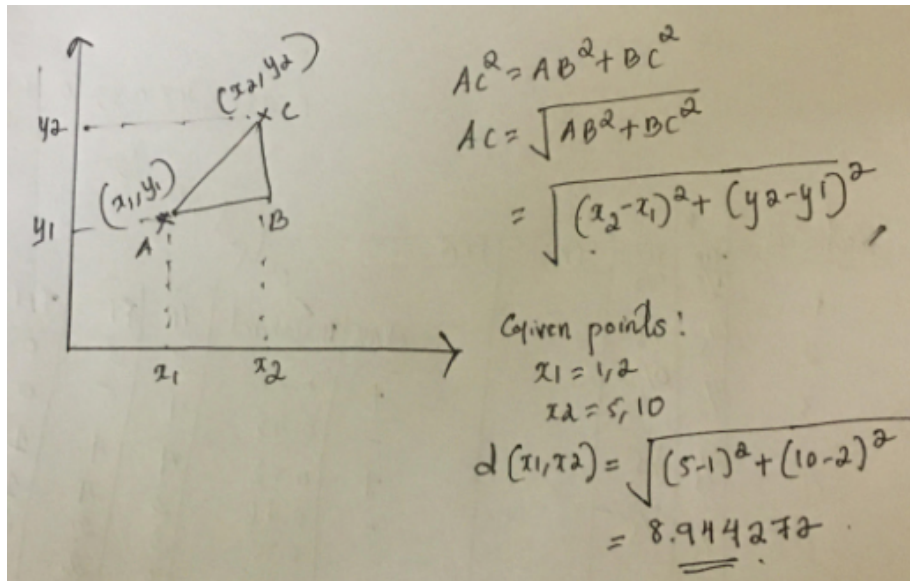 (x2, y2)
C
y2
(x1, y1)
y1
A
B
x1
x2
AC² = AB² + BC²
AC = √AB² + BC²
= √(x₂-x₁)² + (y2-y1)²
Given points:
x1 = 1,2
x2 = 5,10
d (x1, x2) = √(5-1)² + (10-2)²
= 8.944272